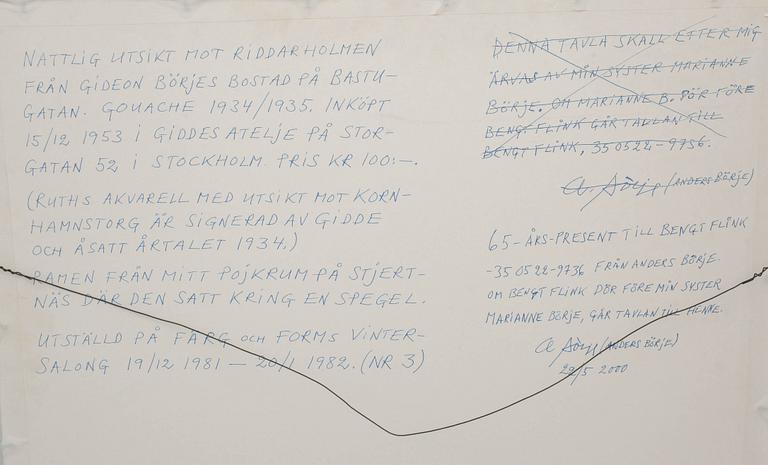 NATTLIG UTSIKT MOT RIDDARHOLMEN
FRÅN GIDEON BÖRJES BOSTAD PÅ BASTU-
GATAN. GOUACHE 1934/1935. INKÖPT
15/12 1953 I GIDDES ATELJE PÅ STOR-
GATAN 52 I STOCKHOLM. PRIS KR 100:-.
(RUTHS AKVARELL MED UTSIKT MOT KORN-
HAMNSTORG ÄR SIGNERAD AV GIDDE
OCH ÅSATT ÅRTALET 1934.)
RAMEN FRÅN MITT POJKRUM PÅ STJERT-
NÄS DÄR DEN SATT KRING EN SPEGEL.
UTSTÄLLD PÅ FÄRG OCH FORMS VINTER-
SALONG 19/12 1981 — 20/1 1982. (NR 3)
DENNA TAVLA SKALL EFTER MIG
ÄRVAS AV MIN SYSTER MARIANNE
BÖRJE. OM MARIANNE B. DÖR FÖRE
BENGT FLINK GÅR TAVLAN TILL
BENGT FLINK, 350522-9736.
A. Börje (ANDERS BÖRJE)
65-ÅRS-PRESENT TILL BENGT FLINK
-350522-9736 FRÅN ANDERS BÖRJE.
OM BENGT FLINK DÖR FÖRE MIN SYSTER
MARIANNE BÖRJE, GÅR TAVLAN TILL HENNE.
A Börje (ANDERS BÖRJE)
22/5 2000